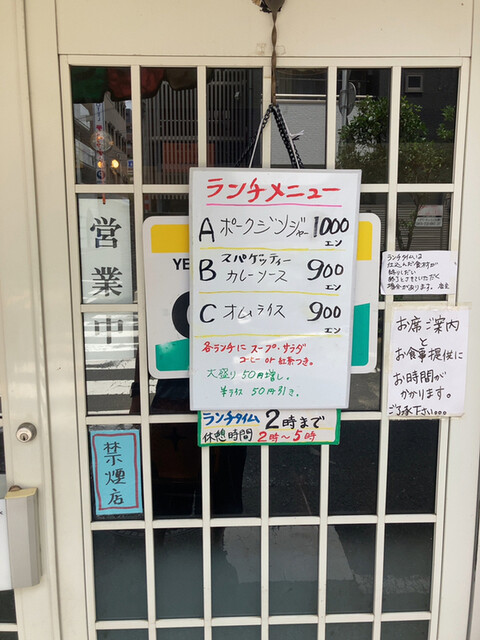 ランチメニュー
A ポークジンジャー 1000エン
B スパゲッティー カレーソース 900エン
C オムライス 900エン
各ランチに スープ・サラダ
コーヒー or 紅茶つき。
大盛り 50円増し。
半ライス 50円引き。
ランチタイム 2時まで
休憩時間 2時〜5時
営業中
禁煙店
YE
ランチタイムは
仕込んだ食材が
終りしだい
終了とさせていただく
場合があります。 店主
お席ご案内
と
お食事提供に
お時間が
かかります。
ご了承下さい...